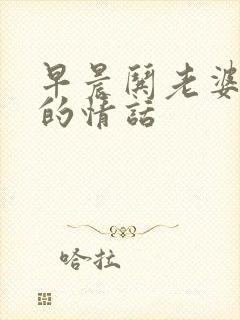 早晨闋老婆
的情話
哈拉